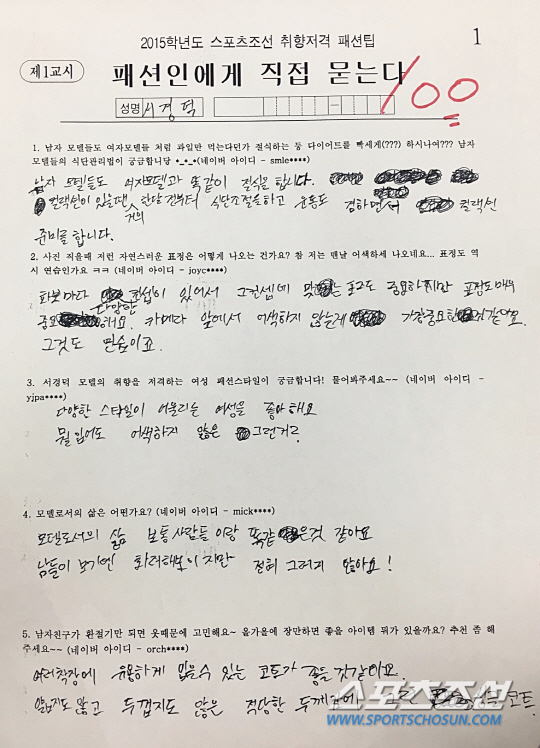 2015학년도 스포츠조선 취향저격 패션팁
1
제1교시
패션인에게 직접 묻는다
100
성명 서경덕
1. 남자 모델들도 여자모델들 처럼 과일만 먹는다던가 절식하는 등 다이어트를 빡세게(???) 하시나여??? 남자
모델들의 식단관리법이 궁금합니당 •_•_•(네이버 아이디 - smle****)
남자 모델들도 여자모델과 똑같이 절식을 합니다.
컬렉션이 있을땐 거의 한달전부터 식단조절을하고 운동도 겸하면서 컬렉션
준비를 합니다.
2. 사진 찍을때 저런 자연스러운 표정은 어떻게 나오는 건가요? 참 저는 맨날 어색하세 나오네요... 표정도 역
시 연습인가요 ㅋㅋ (네이버 아이디 - joyc****)
화보마다 컨셉이 있어서 그컨셉에 맞는 포즈도 중요하지만 다양한 표정도 매우
중요해요. 카메라 앞에서 어색하지 않는게 가장중요한 것같아요.
그것도 연습이죠.
3. 서경덕 모델의 취향을 저격하는 여성 패션스타일이 궁금합니다! 물어봐주세요~~ (네이버 아이디 -
yjpa****)
다양한 스타일이 어울리는 여성을 좋아해요
뭘 입어도 어색하지 않은 그런거?
4. 모델로서의 삶은 어떤가요? (네이버 아이디 - mick****)
모델로서의 삶 보통 사람들 이랑 똑같은것 같아요
남들이 보기엔 화려해보이지만 전혀 그러지 않아요!
5. 남자친구가 환절기만 되면 옷때문에 고민해요~ 올가을에 장만하면 좋을 아이템 뭐가 있을까요? 추천 좀 해
주세요~~ (네이버 아이디 - orch****)
여러착장에 유용하게 입을수 있는 코트가 좋을것같아요.
얇지도 않고 두껍지도 않은 적당한 두께 코트
스포츠조선
WWW.SPORTSCHOSUN.COM